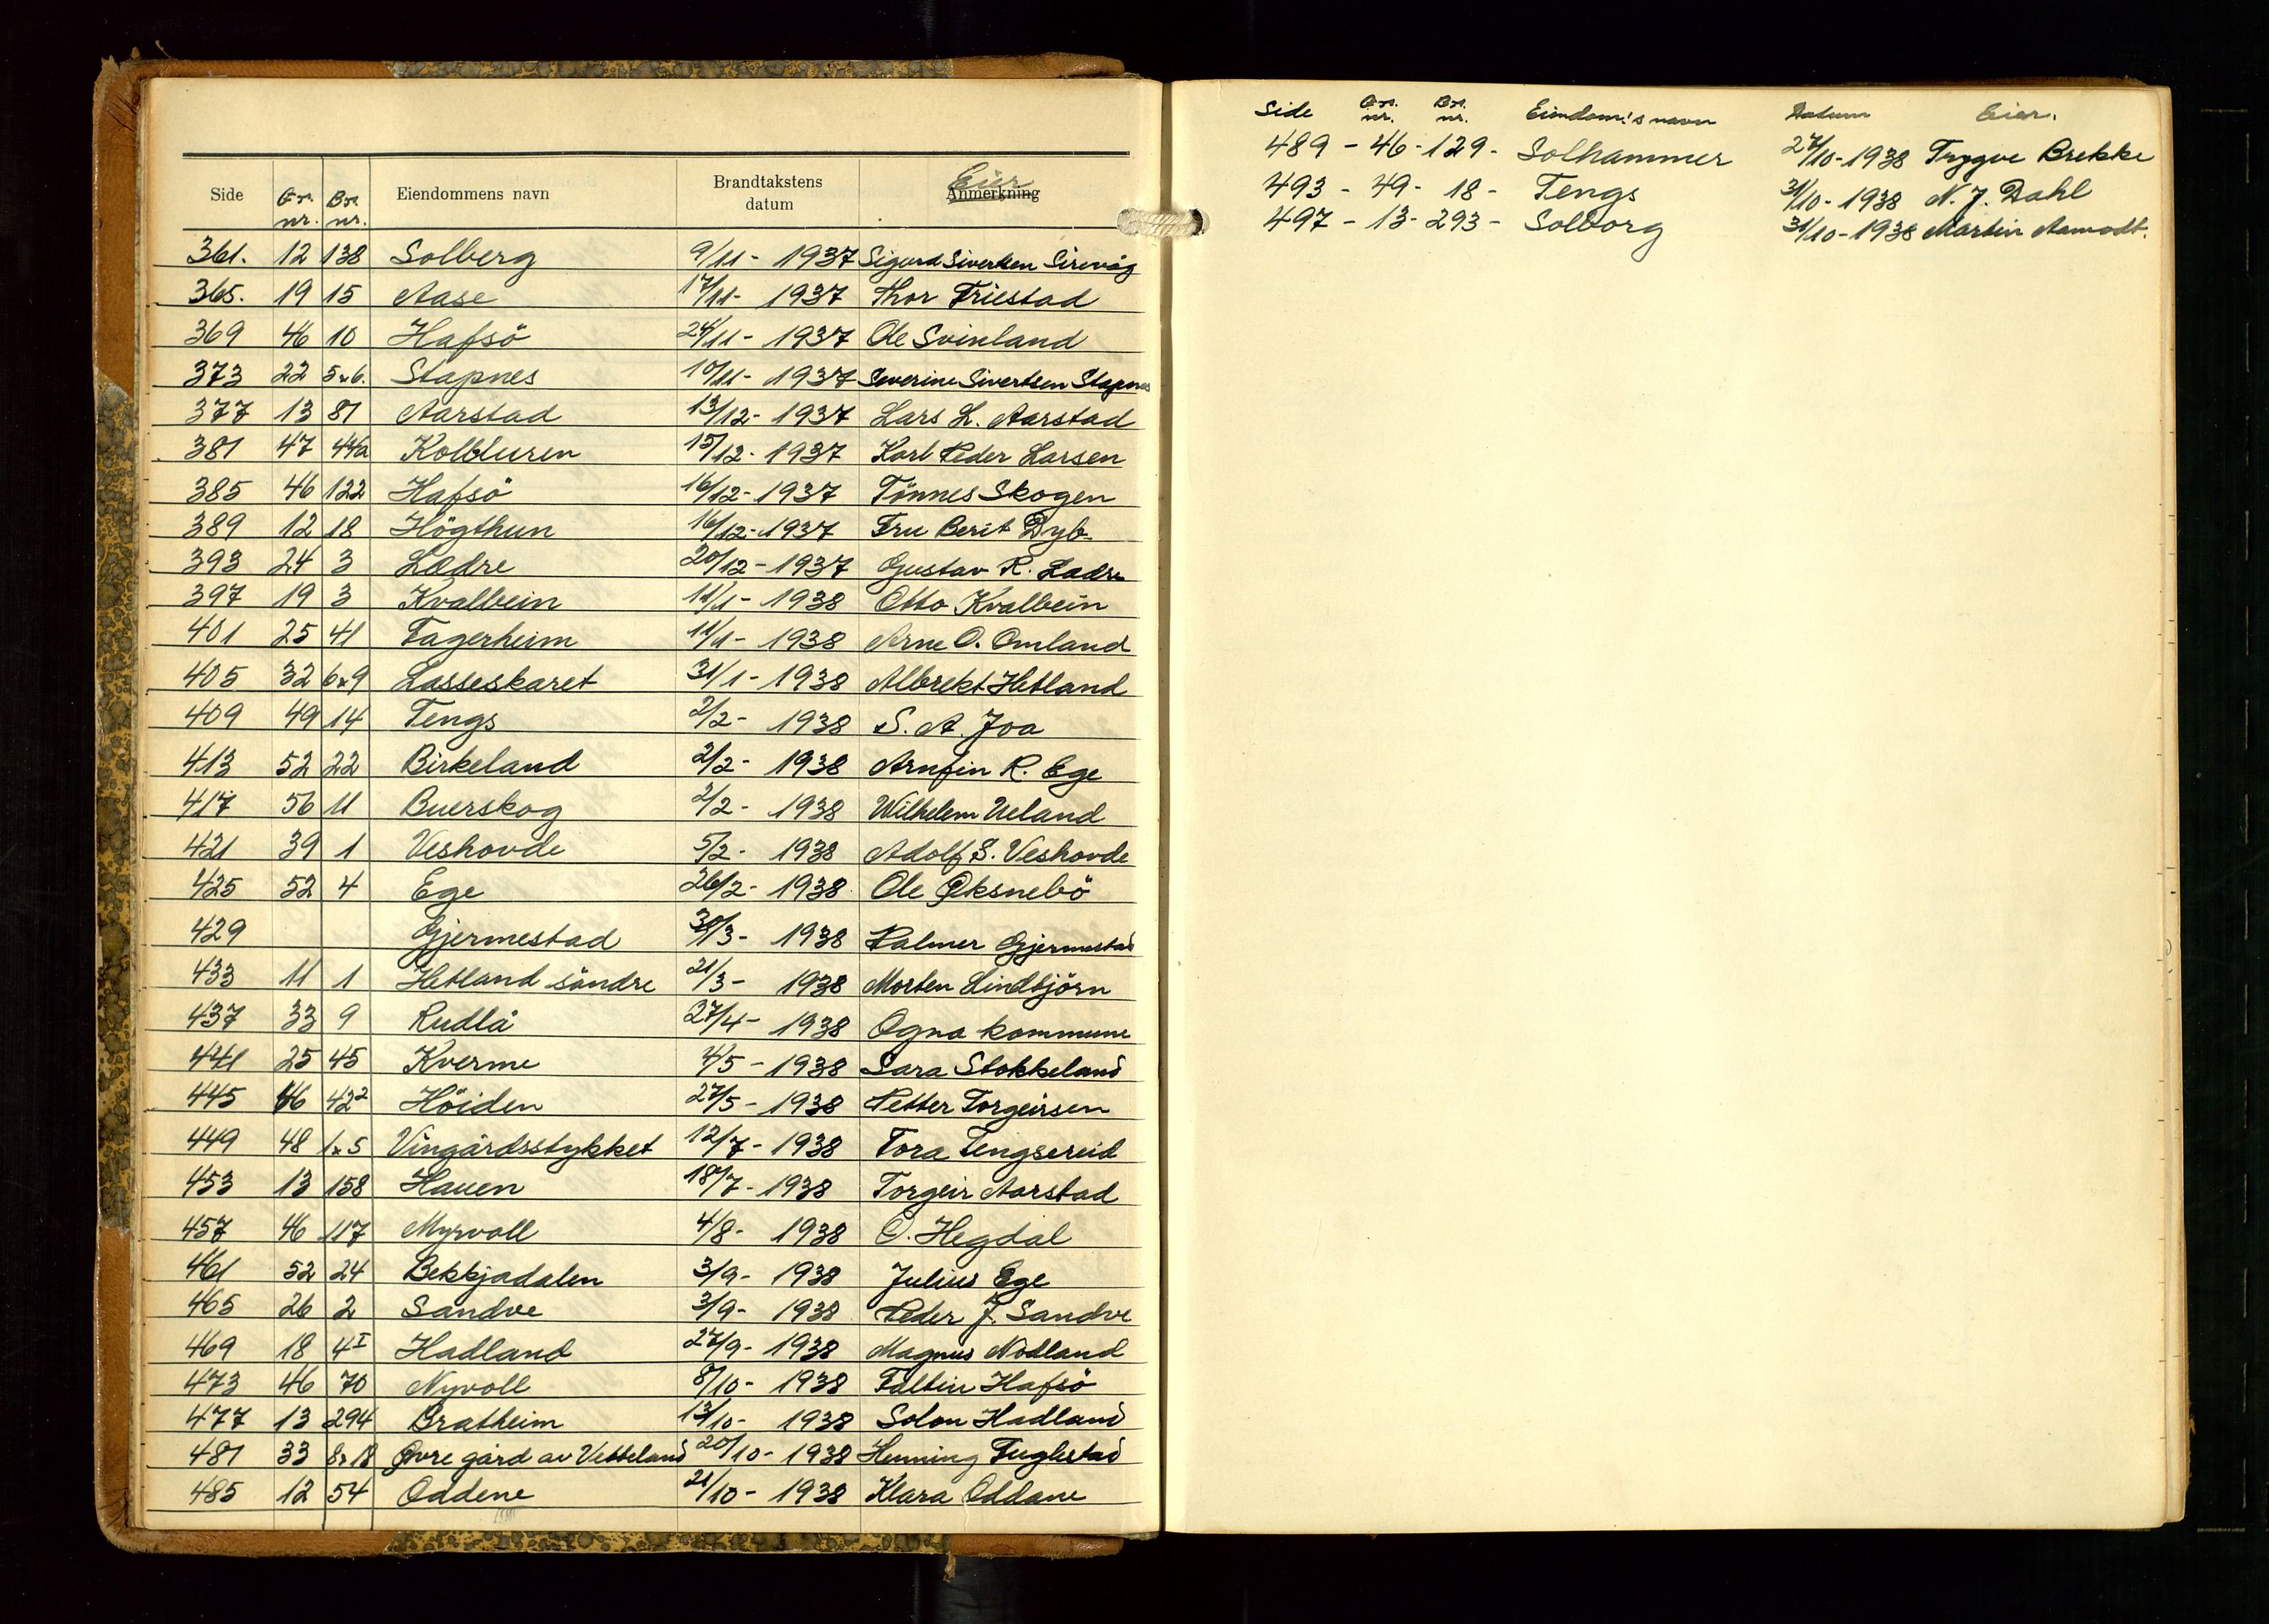 Side Gr. nr. Br. nr. Eiendommens navn Brandtakstens datum Anmerkning Eier
361. 12 138 Solberg 9/11- 1937 Sigurd Sivertsen Sirevåg
365. 19 15 Aase 17/11- 1937 Thor Friestad
369 46 10 Hafsö 24/11- 1937 Ole Svinland
373 22 5x6. Stapnes 10/11- 1937 Severine Sivertsen Stapnes
377 13 87 Aarstad 13/12- 1937 Lars L. Aarstad
381 47 44a Kolbluren 15/12- 1937 Karl Peder Larsen
385 46 122 Hafsö 16/12- 1937 Tönnes Skogen
389 12 18 Högthun 16/12- 1937 Fru Berit Dyb
393 24 3 Lædre 20/12- 1937 Gustav R. Ladre
397 19 3 Kvalbein 11/1- 1938 Otto Kvalbein
401 25 41 Fagerheim 11/1- 1938 Arne O. Omland
405 32 6x9 Lasseskaret 31/1- 1938 Albrekt Hetland
409 49 14 Tengs 2/2- 1938 S. A. Joa
413 52 22 Birkeland 2/2- 1938 Arnfin R. Ege
417 56 11 Buerskog 2/2- 1938 Wilhelm Ueland
421 39 1 Veshovde 5/2- 1938 Adolf S. Veshovde
425 52 4 Ege 26/2- 1938 Ole Øksnebö
429 Gjermestad 30/3- 1938 Palmer Gjermestad
433 11 1 Hetland söndre 21/3- 1938 Morten Lindbjörn
437 33 9 Rudlå 27/4- 1938 Ogna kommune
441 25 45 Kverme 4/5- 1938 Sara Stokkeland
445 46 42² Höiden 27/5- 1938 Petter Torgeirsen
449 48 1x5 Vingårdsstykket 12/7- 1938 Tora Tengsereid
453 13 158 Hauen 18/7- 1938 Torgeir Aarstad
457 46 117 Myrvoll 4/8- 1938 O. Hegdal
461 52 24 Bekkjadalen 3/9- 1938 Julius Ege
465 26 2 Sandve 3/9- 1938 Peder J. Sandve
469 18 4I Hadland 27/9- 1938 Magnus Nodland
473 46 70 Nyvoll 8/10- 1938 Faltin Hafsö
477 13 294 Bratheim 13/10- 1938 Solon Hadland
481 33 8x18 Øvre gård av Vetteland 20/10- 1938 Henning Fuglestad
485 12 54 Oddene 21/10- 1938 Klara Oddane
Side Gr. nr. Br. nr. Eiendom.'s navn Datum Eier.
489 - 46 - 129 - Solhammer 27/10- 1938 Trygve Brekke
493 - 49 - 18 - Tengs 31/10- 1938 N. J. Dahl
497 - 13 - 293 - Solborg 31/10- 1938 Martin Aamodt.